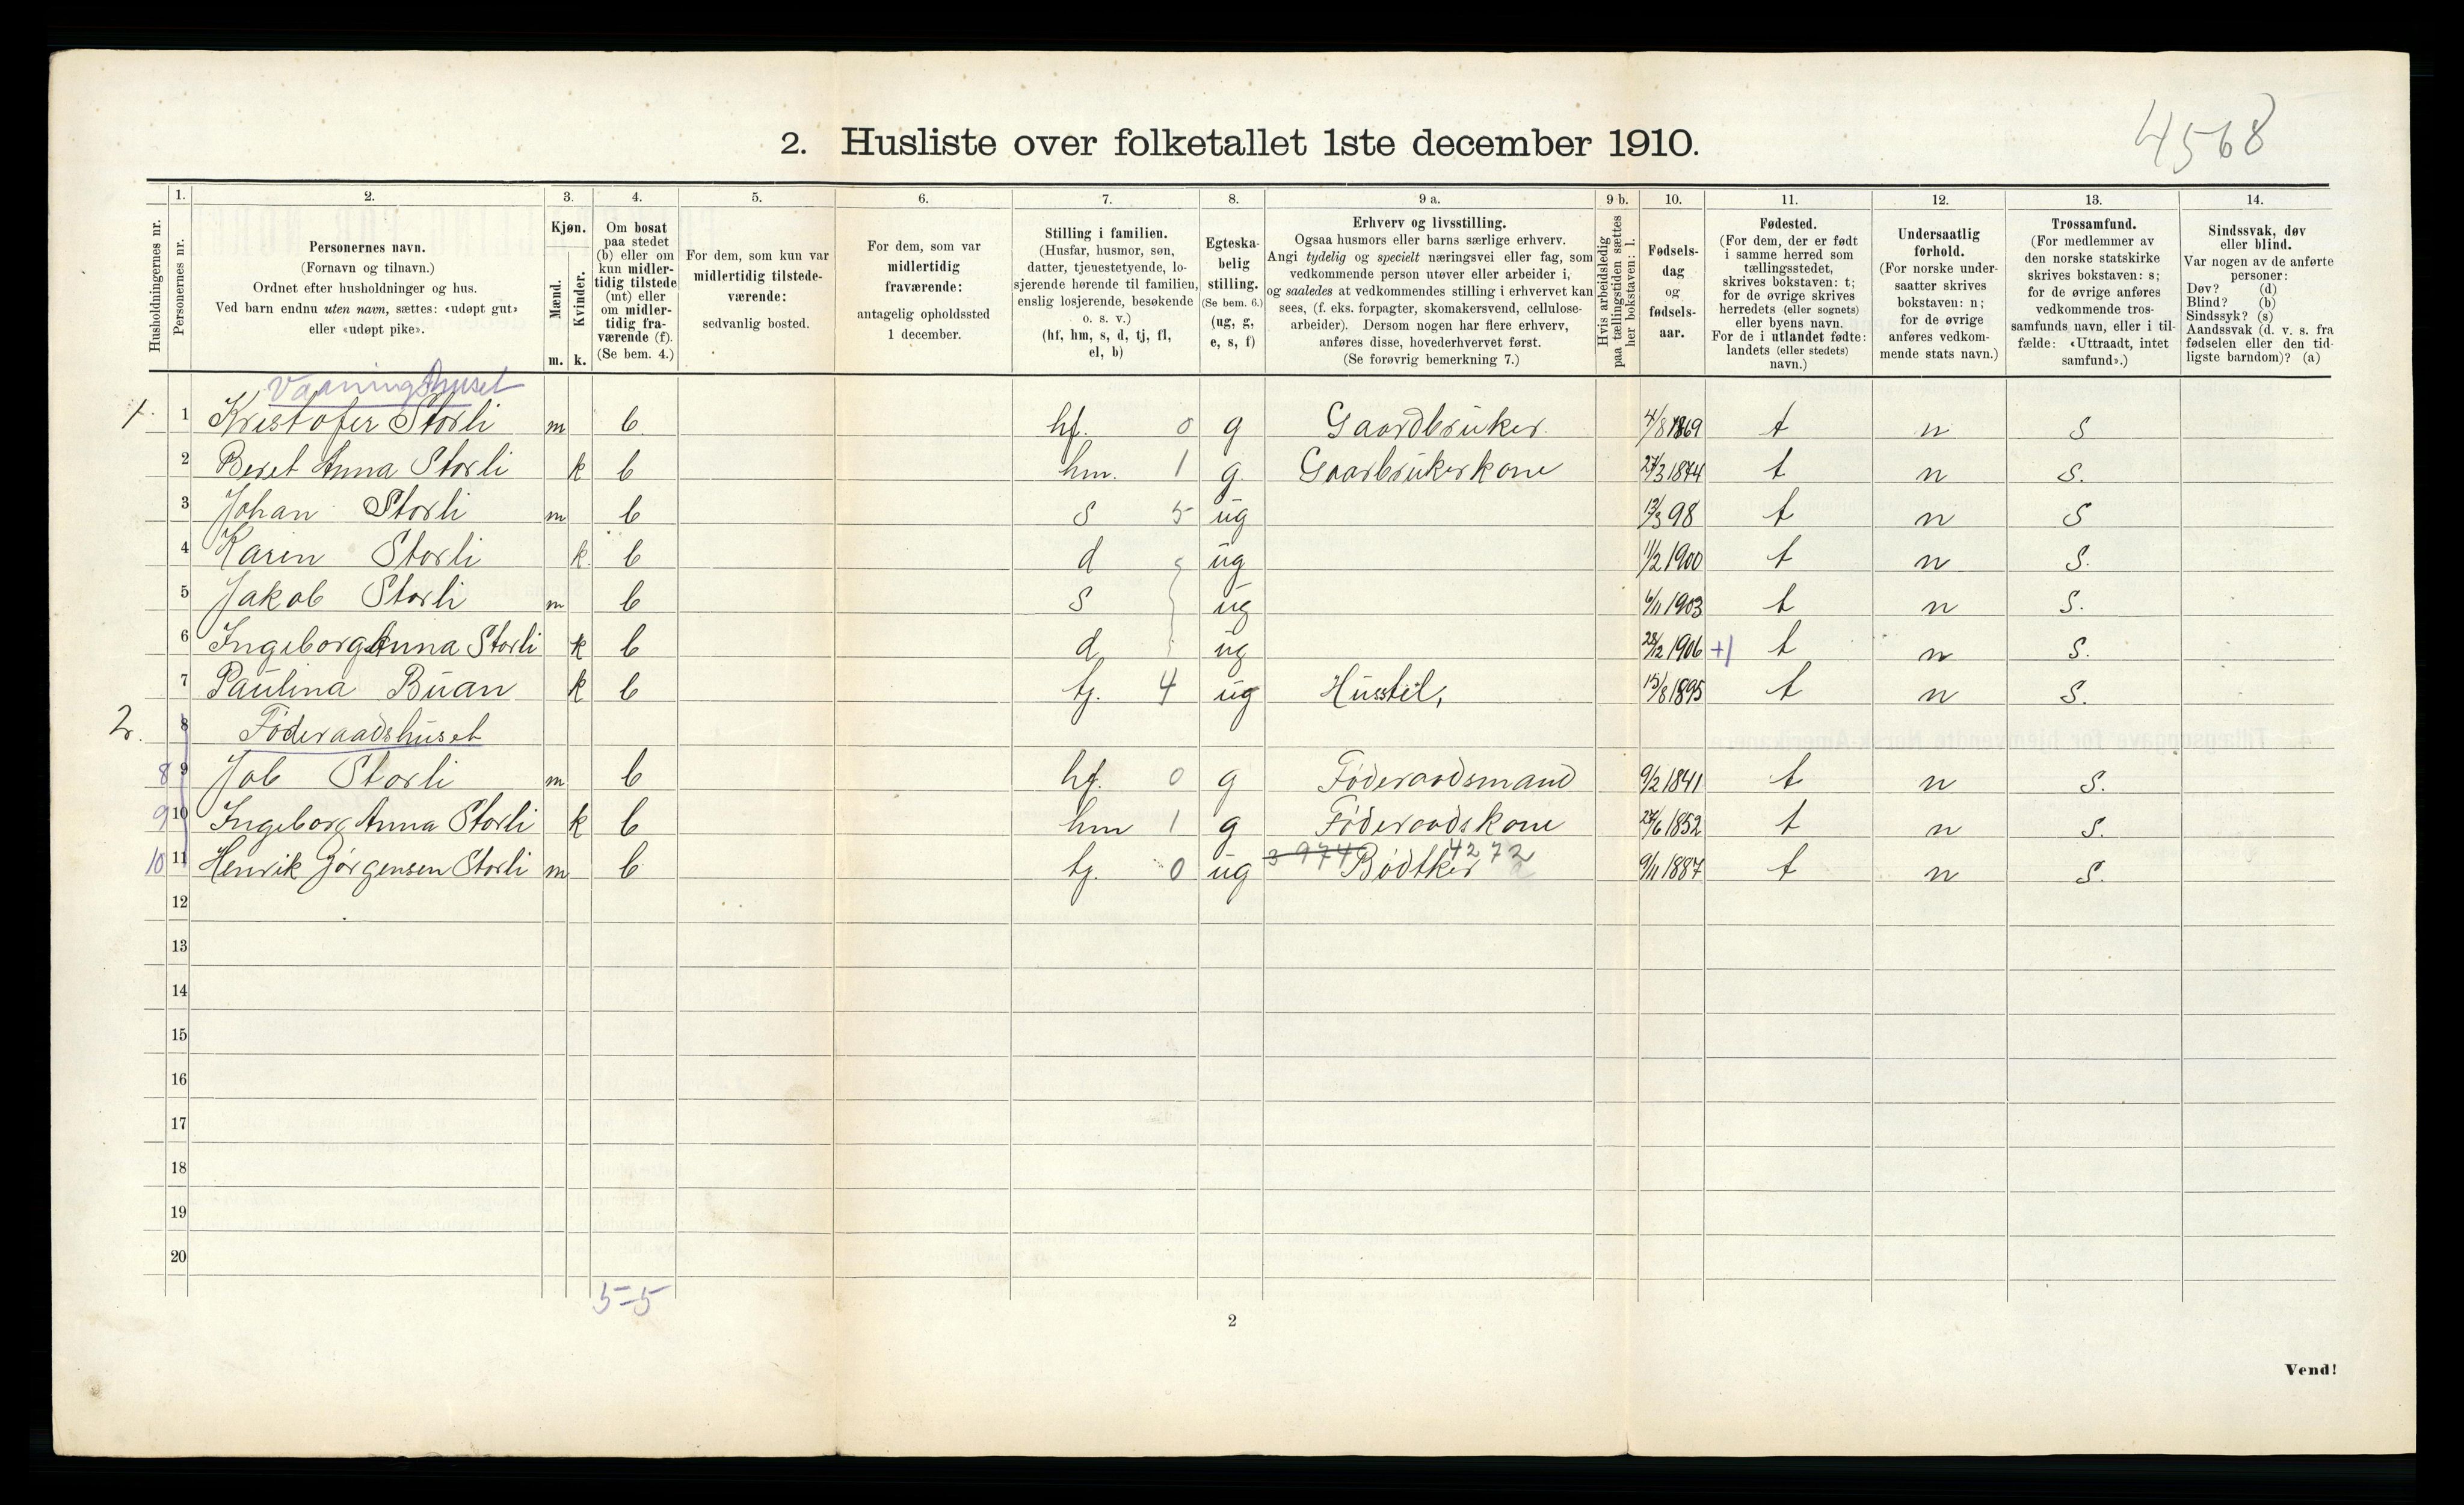 4568
2. Husliste over folketallet 1ste december 1910.
Husholdningernes nr.
1. Personernes nr.
2. Personernes navn. (Fornavn og tilnavn.) Ordnet efter husholdninger og hus. Ved barn endnu uten navn, sættes: «udøpt gut» eller «udøpt pike».
3. Kjøn. Mænd. m. Kvinder. k.
4. Om bosat paa stedet (b) eller om kun midlertidig tilstede (mt) eller om midlertidig fraværende (f). (Se bem. 4.)
5. For dem, som kun var midlertidig tilstedeværende: sedvanlig bosted.
6. For dem, som var midlertidig fraværende: antagelig opholdssted 1 december.
7. Stilling i familien. (Husfar, husmor, søn, datter, tjenestetyende, losjerende hørende til familien, enslig losjerende, besøkende o. s. v.) (hf, hm, s, d, tj, fl, el, b)
8. Egteskabelig stilling. (Se bem. 6.) (ug, g, e, s, f)
9 a. Erhverv og livsstilling. Ogsaa husmors eller barns særlige erhverv. Angi tydelig og specielt næringsvei eller fag, som vedkommende person utøver eller arbeider i, og saaledes at vedkommendes stilling i erhvervet kan sees, (f. eks. forpagter, skomakersvend, cellulosearbeider). Dersom nogen har flere erhverv, anføres disse, hovederhvervet først. (Se forøvrig bemerkning 7.)
9 b. Hvis arbeidsledig paa tællingstiden sættes her bokstaven: l.
10. Fødselsdag og fødselsaar.
11. Fødested. (For dem, der er født i samme herred som tællingsstedet, skrives bokstaven: t; for de øvrige skrives herredets (eller sognets) eller byens navn. For de i utlandet fødte: landets (eller stedets) navn.)
12. Undersaatlig forhold. (For norske undersaatter skrives bokstaven: n; for de øvrige anføres vedkommende stats navn.)
13. Trossamfund. (For medlemmer av den norske statskirke skrives bokstaven: s; for de øvrige anføres vedkommende trossamfunds navn, eller i tilfælde: «Uttraadt, intet samfund».)
14. Sindssvak, døv eller blind. Var nogen av de anførte personer: Døv? (d) Blind? (b) Sindssyk? (s) Aandssvak (d. v. s. fra fødselen eller den tidligste barndom)? (a)
Vaaningshuset
1. 1 Kristofer Storli m b hf. 0 g Gaardbruker 4/8 1869 t n S
2 Beret Anna Storli k b hm. 1 g. Gaarbrukerkone 27/3 1874 t n S.
3 Johan Storli m b S 5 ug 13/3 98 t n S
4 Karin Storli k. b d ug 11/2 1900 t n S.
5 Jakob Storli m b S ug 6/11 1903 t n S.
6 Ingeborg Anna Storli k b d ug 28/12 1906 +1 t n S.
7 Paulina Buan k b tj. 4 ug Husstel, 15/8 1895 t n S.
2. 8 Föderaadshuset
8 9 Job Storli m b hf. 0 g Föderaadsmand 9/2 1841 t n S.
9 10 Ingeborg Anna Storli k b hm 1 g Föderaadskone 24/6 1852 t n S.
10 11 Henrik Jörgensen Storli m b tj. 0 ug 3974 Bödtker 4272 9/11 1887 t n S.
12
13
14
15
16
17
18
19
20
5-5
2
Vend!